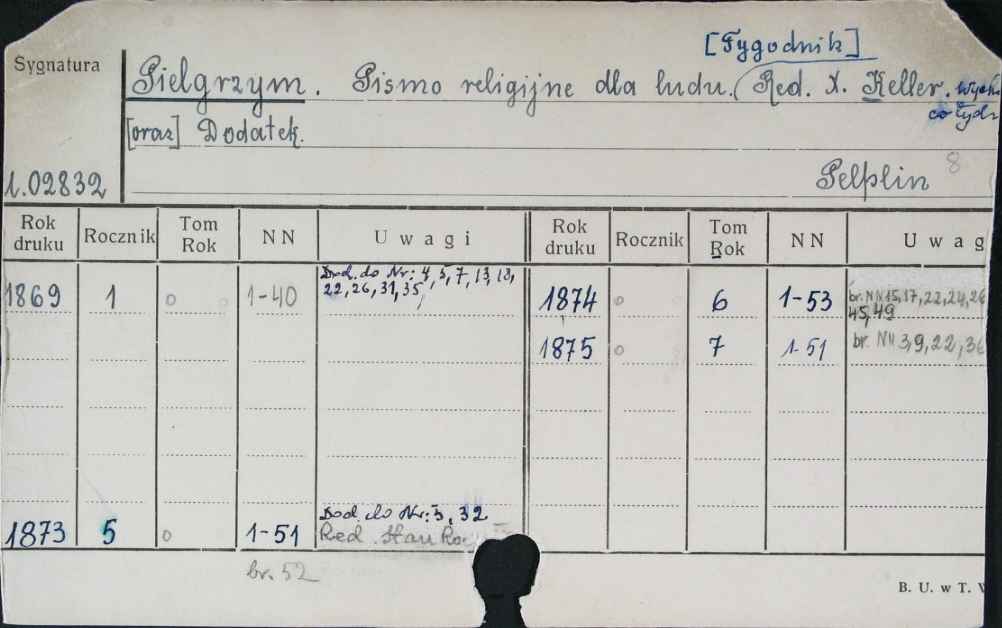 [Tygodnik]
Sygnatura
Pielgrzym. Pismo religijne dla ludu. (Red. X. Keller. wych.
co tydz
[oraz] Dodatek.
1.02832
Pelplin 8
Rok druku Rocznik Tom Rok NN Uwagi Rok druku Rocznik Tom Rok NN Uwag
Dod. do Nr: 4, 5, 7, 13, 18,
1869 1 o 1-40 22, 26, 31, 35
1874 o 6 1-53 br. NN 15, 17, 22, 24, 26
45, 49
1875 o 7 1-51 br. NN 3, 9, 22, 36
Dod. do Nr: 3, 32
1873 5 o 1-51 Red.
br. 52
B. U. w T.